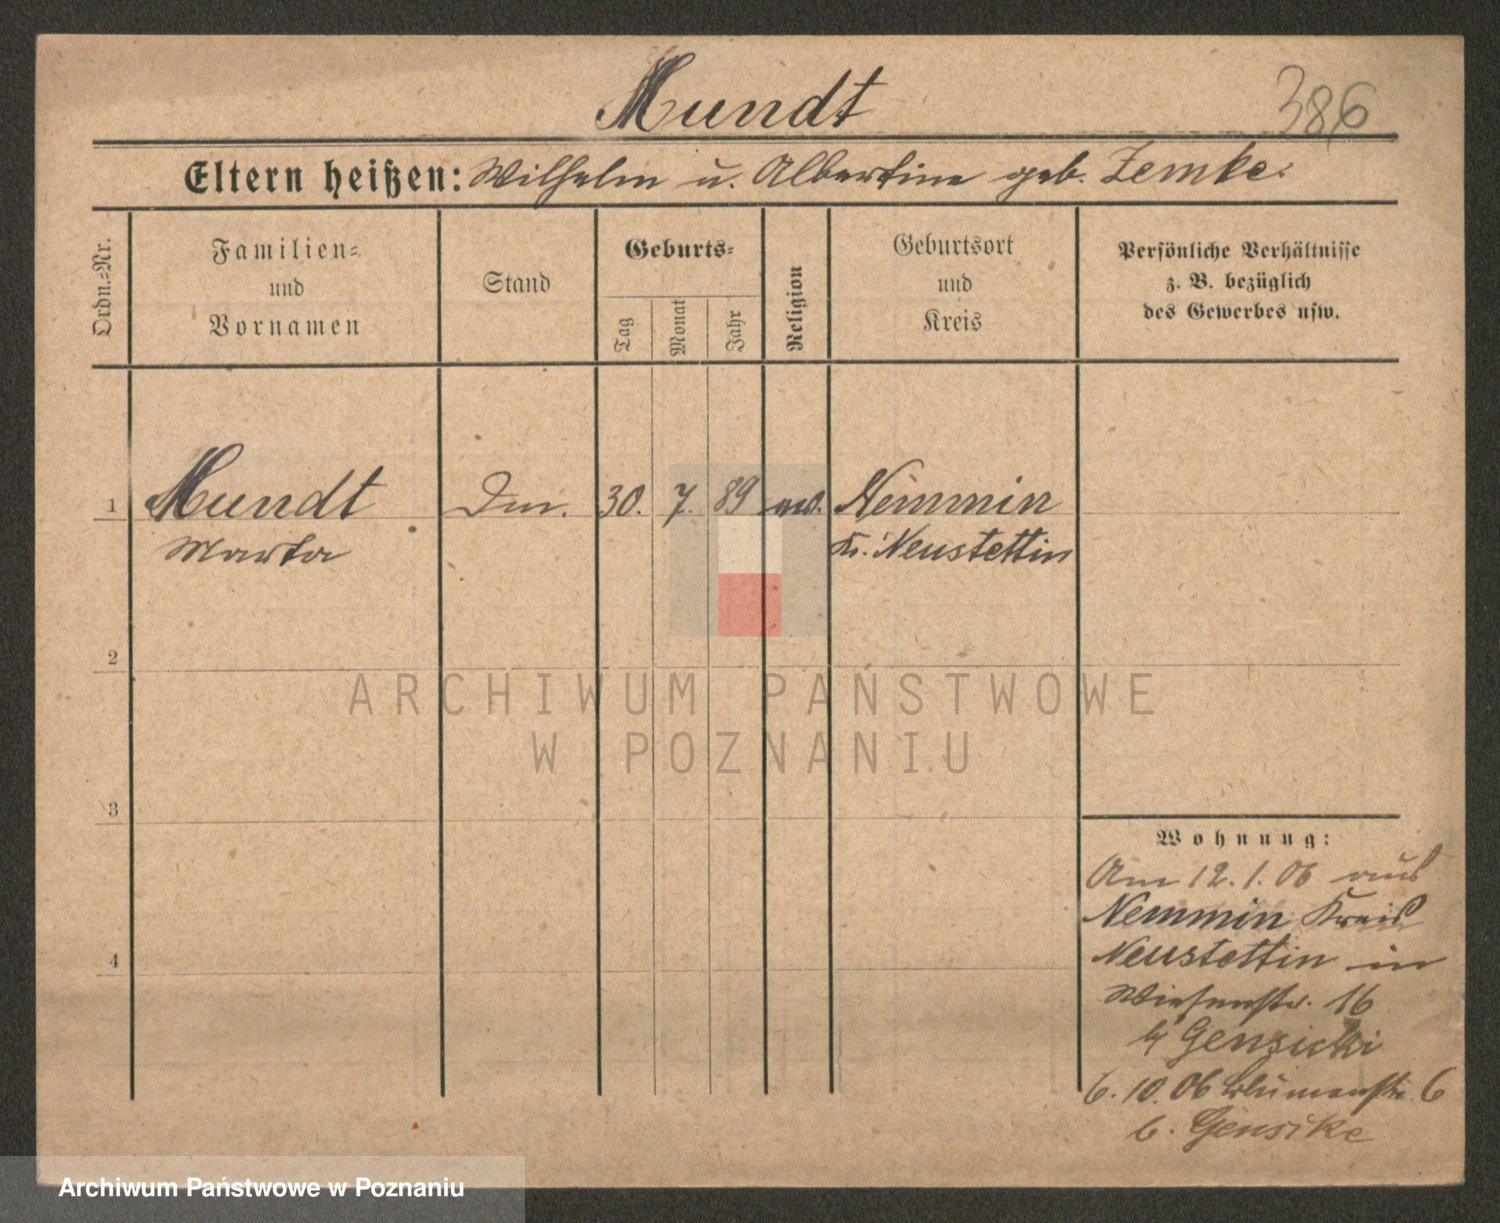 Mundt
386
Eltern heißen: Wilhelm u. Albertine geb. Zemke.
Ordn.=Nr.
Familien=
und
Vornamen
Stand
Geburts=
Tag
Monat
Jahr
Religion
Geburtsort
und
Kreis
Persönliche Verhältnisse
z. B. bezüglich
des Gewerbes usw.
1 Mundt 30. 7. 89 Nemmin
Marta Kr. Neustettin
2
ARCHIWUM PAŃSTWOWE
W POZNANIU
3
Wohnung:
Am 12.1.06 aus
Nemmin Kreis
4
Neustettin in
Wiesenstr. 16
Gensicki
6.10.06 Blumenstr. 6
b. Gensike
Archiwum Państwowe w Poznaniu